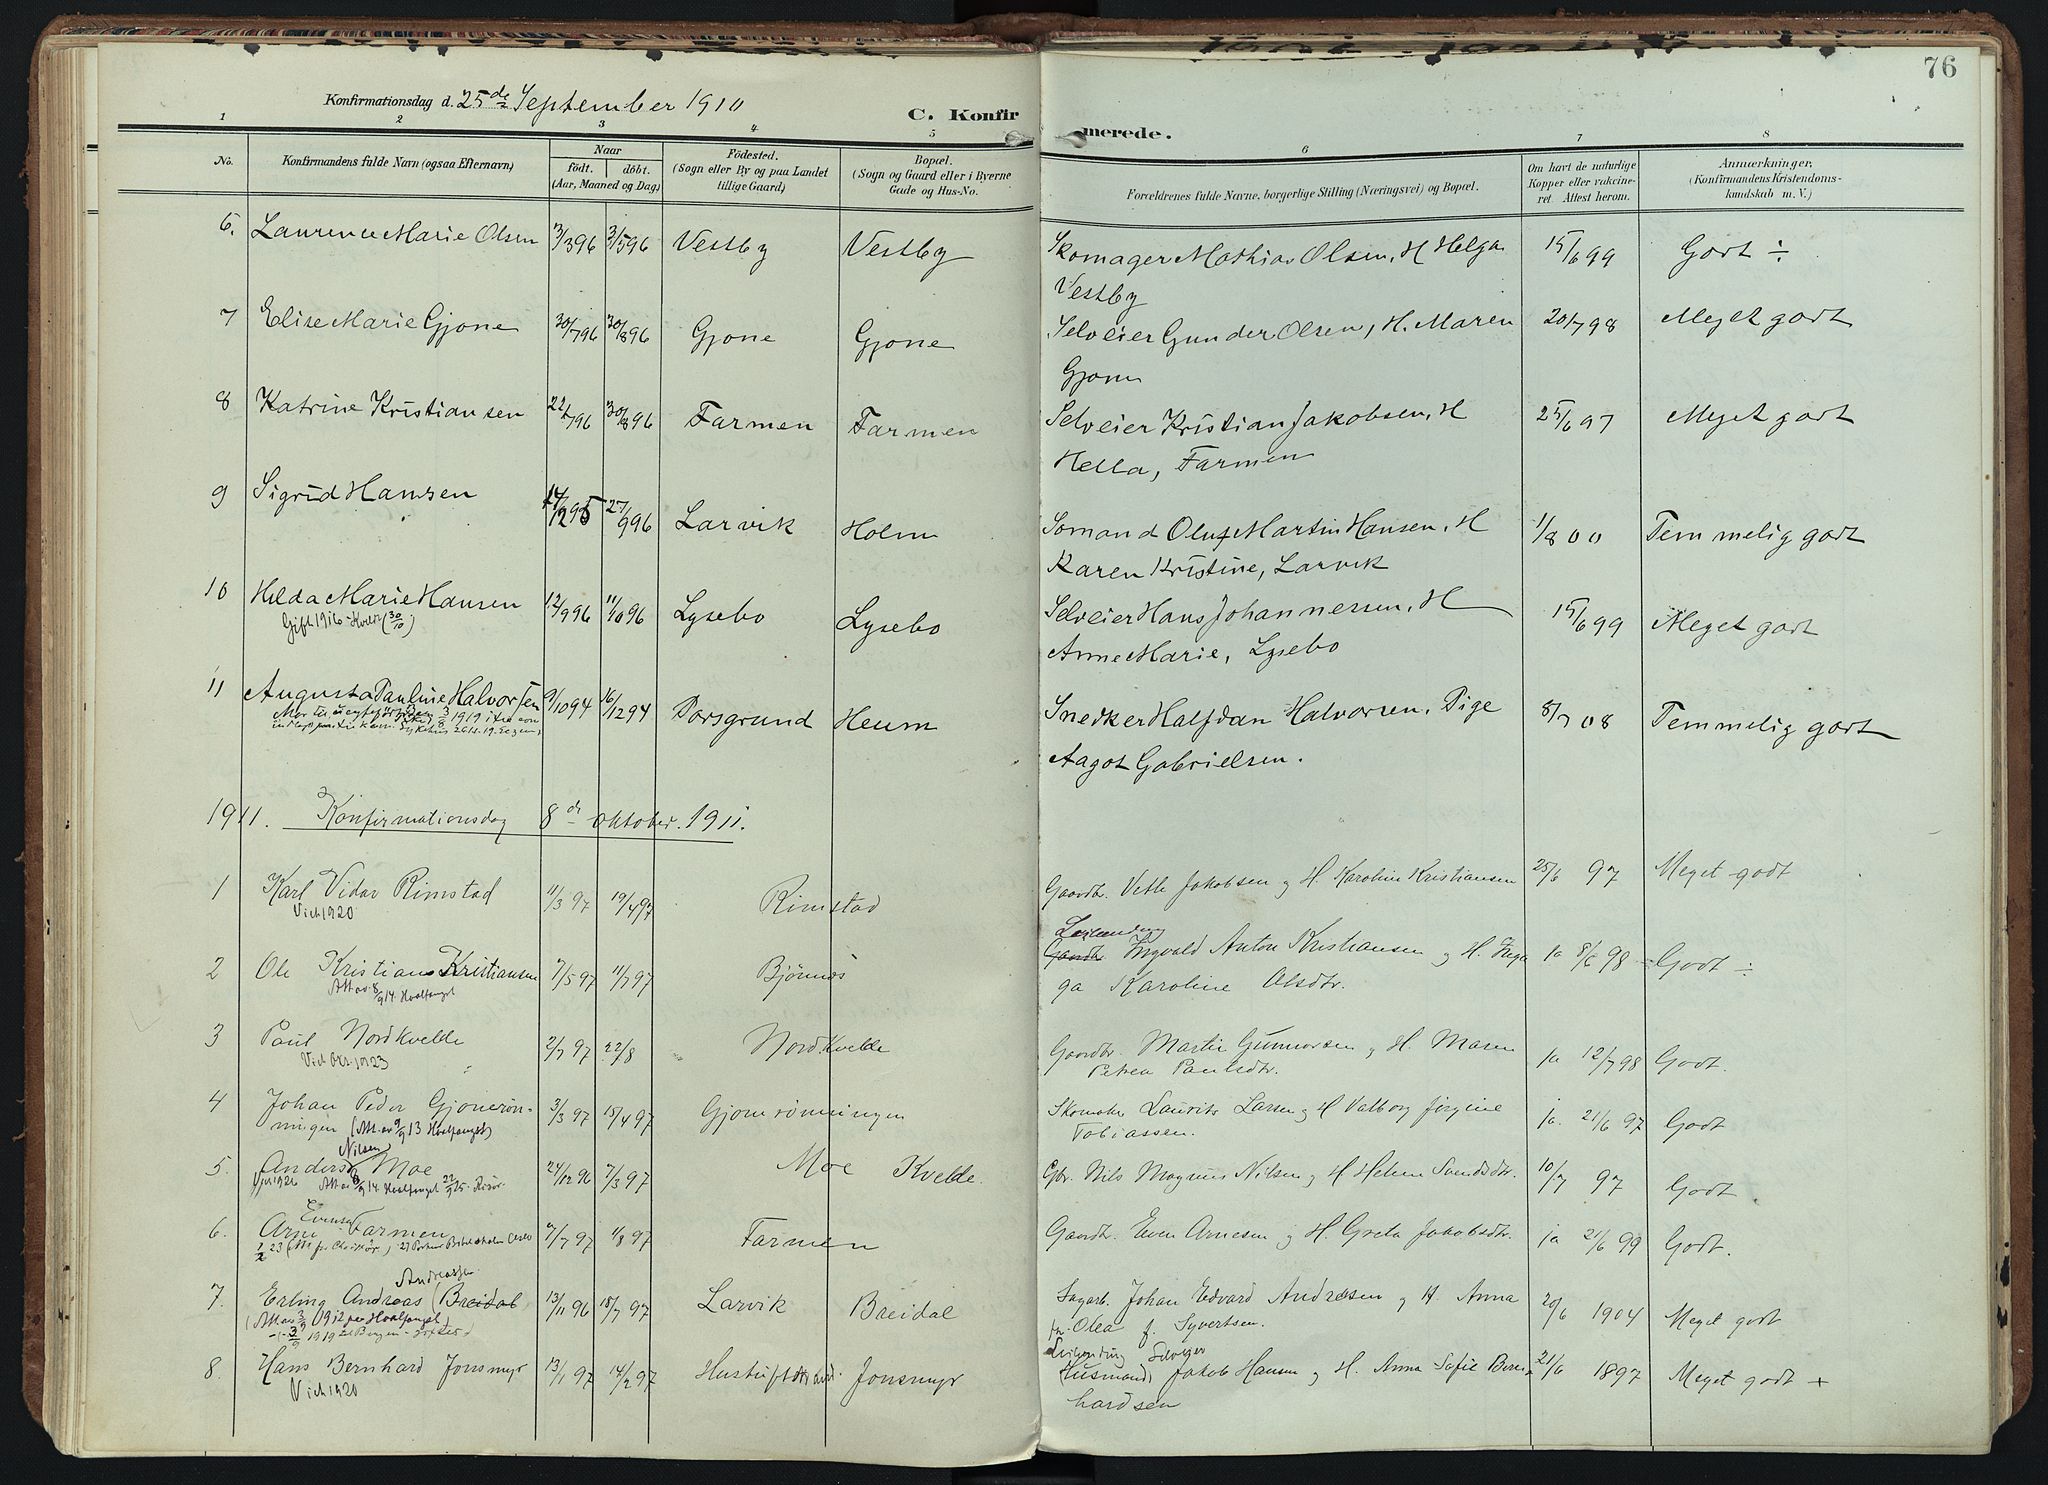 76
Konfirmationsdag d. 25de September 1910
C. Konfirmerede.
1 2 3 4 5 6 7 8
No. Konfirmandens fulde Navn (ogsaa Efternavn) Naar født. døbt. (Aar, Maaned og Dag) Fødested. (Sogn eller By og paa Landet tillige Gaard) Bopæl. (Sogn og Gaard eller i Byerne Gade og Hus-No. Forældrenes fulde Navne, borgerlige Stilling (Næringsvei) og Bopæl. Om havt de naturlige Kopper eller vakcineret. Attest herom. Anmærkninger, (Konfirmandens Kristendomskundskab m. V.)
6. Laurence Marie Olsen 3/3 96 3/5 96 Vestby Vestby Skomager Mathias Olsen, H Helga 15/6 99 Godt ÷
Vestby
7 Elise Marie Gjone 30/7 96 30/8 96 Gjone Gjone Selveier Gunder Olsen, H. Maren 20/7 98 Meget godt
Gjone
8 Katrine Kristiansen 22/7 96 30/8 96 Farmen Farmen Selveier Kristian Jakobsen, H 25/6 97 Meget godt
Hella, Farmen
9 Sigrid Hansen 14/12 95 27/9 96 Larvik Holm Sømand Oluf Martin Hansen, H 1/8 00 Temmelig godt
Karen Kristine, Larvik
10 Hilda Marie Hansen 12/9 96 11/10 96 Lysebo Lysebo Selveier Hans Johannessen, H 15/6 99 Meget godt
Gift 1916 Kvelde (30/10)
Anne Marie, Lysebo
11 Augusta Pauline Halvorsen 9/10 94 16/12 94 Porsgrund Heum Snedker Halfdan Halvorsen, Pige 8/7 08 Temmelig godt
Aagot Gabrielsen.
1911. Konfirmationsdag 8de oktober. 1911.
1 Karl Vidar Rimstad 11/3 97 19/4 97 Rimstad Gaardbr. Vetle Jakobsen og H. Karoline Kristiansen 25/6 97 Meget godt
Vich 1920
2 Ole Kristian Kristiansen 7/5 97 11/7 97 Bjønnes Gaardbr Ingvald Anton Kristiansen og H. Inga ja 8/6 98 Godt ÷
Att av 8/9 14. Hvalfangst
Karoline Olsdtr.
3 Paul Nordkvelde 2/7 97 22/8 Nordkvelde Gaardbr. Martin Gunnarsen og H. Maren ja 12/7 98 Godt.
Petrea Paulsdtr.
4 Johan Peder Gjonerønningen 3/3 97 15/4 97 Gjonerønningen Skomaker Laurits Larsen og H Valborg Jørgine ja. 21/6 97 Godt
(Att. av 9/9 13 Hvalfangst)
Tobiassen.
Nilsen
5. Anders Moe 24/12 96 7/3 97 Moe Kvelde. Gbr. Nils Magnus Nilsen og H Helene Svendsdtr. 10/7 97 Godt
Evensen
6. Arne Farmen 7/7 97 1/8 97 Farmen Gaardbr. Even Arnesen og H. Greta Jakobsdtr. ja 21/6 99 Godt.
Andreassen
7. Erling Andreas (Breidal) 13/11 96 18/7 97 Larvik Breidal Sagarb. Johan Edvard Andresen og H. Anna 20/6 1904 Meget godt
Olea f. Syvertsen.
8. Hans Bernhard Jonsmyr 13/1 97 14/2 97 Jonsmyr Husmand Jakob Hansen og H. Anna Sofie Bern- 21/6 1897 Meget godt +
Vich 1920
hardsen